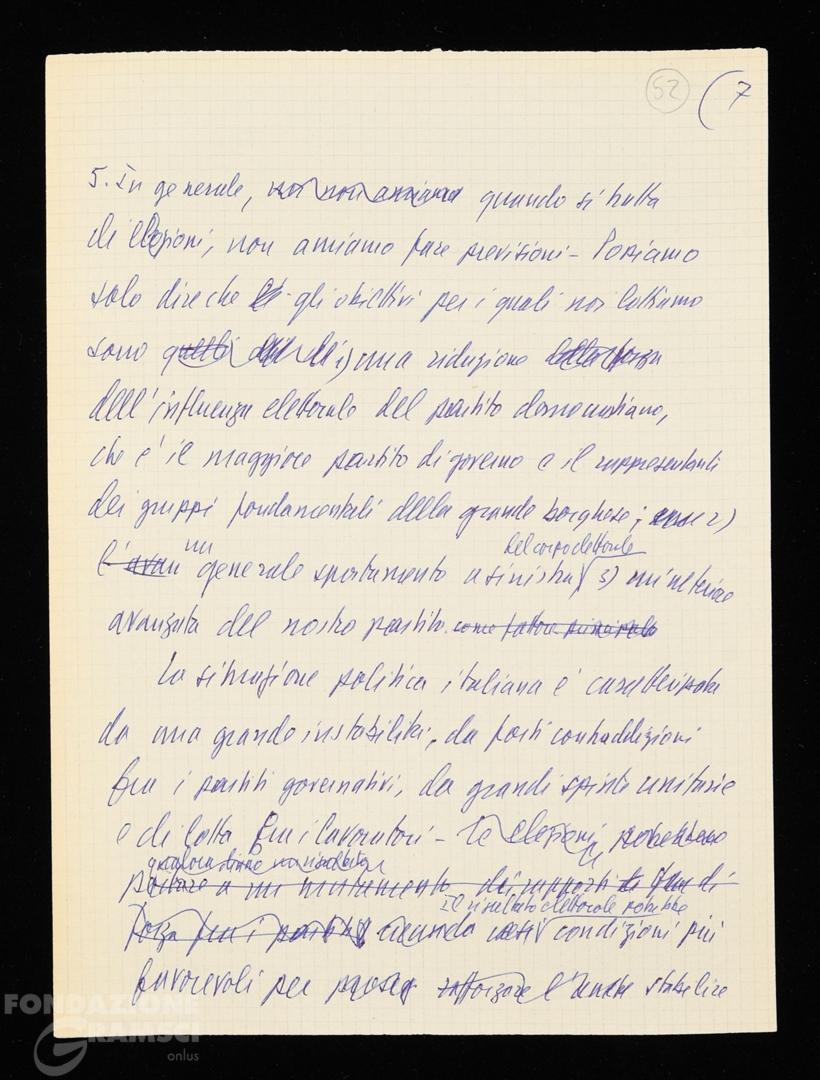 52 (7
5. In generale, noi non amiamo quando si tratta
di elezioni, non amiamo fare previsioni - Possiamo
solo dire che gli obiettivi per i quali noi lottiamo
sono 1) una riduzione
dell'influenza elettorale del partito democristiano,
che è il maggiore partito di governo e il rappresentante
dei gruppi fondamentali della grande borghese; 2)
un generale spostamento a sinistra del corpo elettorale 3) un'ulteriore
avanzata del nostro partito. come fattore principale
La situazione politica italiana è caratterizzata
da una grande instabilità, da forti contraddizioni
fra i partiti governativi, da grandi spinte unitarie
e di lotta fra i lavoratori - Le elezioni potrebbero
portare a un mutamento dei rapporti di
forza fra i partiti creando condizioni più
Il risultato elettorale potrebbe
favorevoli per rafforzare stabilire
FONDAZIONE
GRAMSCI
onlus